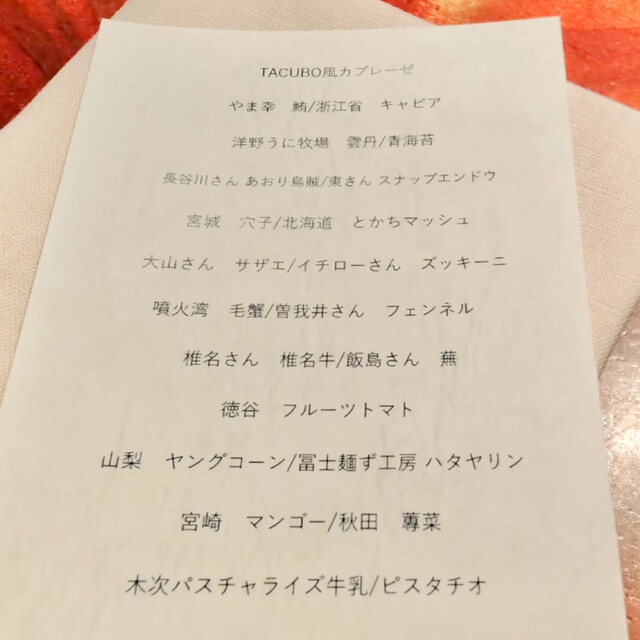 TACUBO風カプレーゼ
やま幸　鮪/浙江省　キャビア
洋野うに牧場　雲丹/青海苔
長谷川さん あおり烏賊/東さん スナップエンドウ
宮城　穴子/北海道　とかちマッシュ
大山さん　サザエ/イチローさん　ズッキーニ
噴火湾　毛蟹/曽我井さん　フェンネル
椎名さん　椎名牛/飯島さん　蕪
徳谷　フルーツトマト
山梨　ヤングコーン/冨士麺ず工房 ハタヤリン
宮崎　マンゴー/秋田　蓴菜
木次パスチャライズ牛乳/ピスタチオ